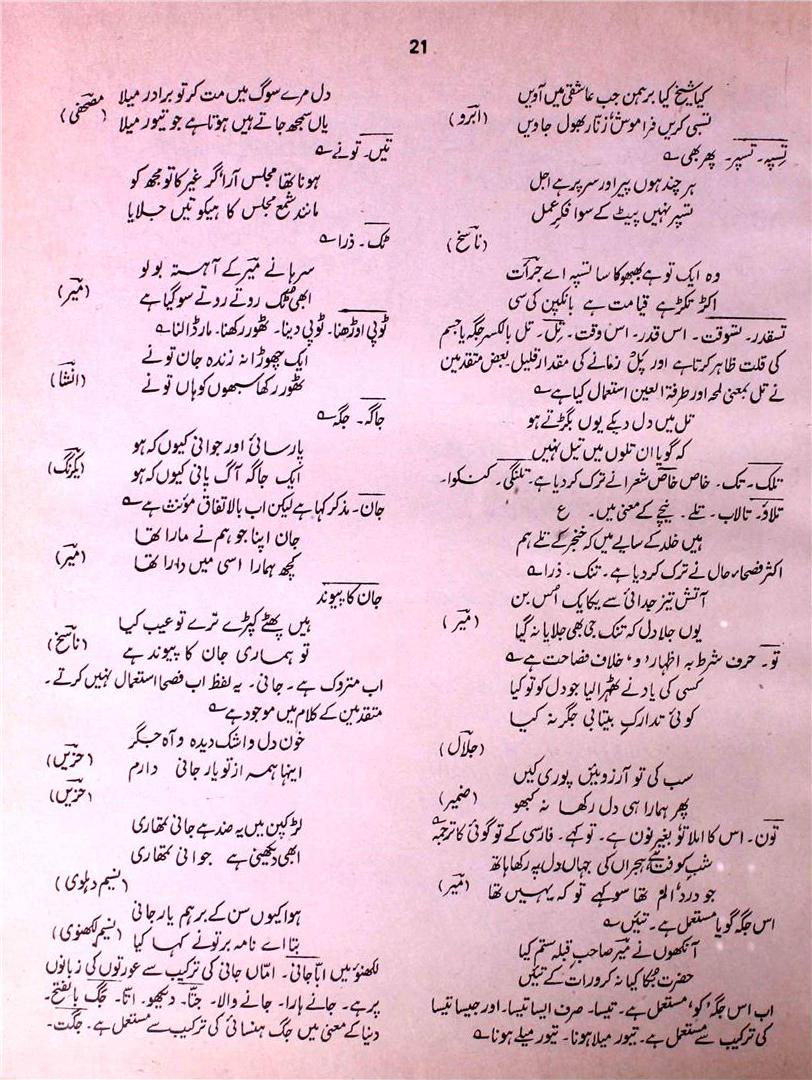 21
کیا شیخ کیا برہمن جب عاشقی میں آویں
تسبی کریں فراموش زنار بھول جاویں (آبرو)
تسپہ۔ تسپر۔ پھر بھی ؎
ہر چند ہوں پیر اور سر پر ہے اجل
تسپر نہیں پیٹ کے سوا فکرِ عمل
(ناسخ)
وہ ایک تو ہے بھبھوکا سا تسپہ اے جرأت
اکڑ تکڑ ہے قیامت ہے بانکپن کی سی
تسقدر۔ تسوقت۔ اس قدر۔ اس وقت۔ تِل۔ تل بالکسر جگہ یا جسم
کی قلت ظاہر کرتا ہے اور پل زمانے کی مقدار قلیل۔ بعض متقدمین
نے تل بمعنی لمحہ اور طرفۃ العین استعمال کیا ہے ؎
تل میں دل دیکے یوں بگڑتے ہو
کہ گویا ان تلوں میں تیل نہیں
تلک۔ تک۔ خاص خاص شعرا نے ترک کر دیا ہے۔ تلنگی۔ کنکوا۔
تلاؤ۔ تالاب۔ تلے۔ نیچے کے معنی میں۔ ع
ہیں خلد کے سایے میں کہ خنجر کے تلے ہم
اکثر فصحاء حال نے ترک کر دیا ہے۔ تنک۔ ذرا ؎
آتش تیز جدائی سے یکایک اُس بن
یوں جلا دل کہ تنک جی بھی جلایا نہ گیا (میر)
تو۔ حرف شرط بہ اظہار 'و' خلاف فصاحت ہے ؎
کسی کی یاد نے ٹھہرا لیا جو دل کو تو کیا
کوئی تدارکِ بیتابی جگر نہ کیا
(جلال)
سب کی تو آرزوئیں پوری کیں
پھر ہمارا ہی دل رکھا نہ کبھو (ضمیر)
تون۔ اس کا املا تو بغیر نون ہے۔ تو کہے۔ فارسی کے تو گوئی کا ترجمہ ؎
شب کوفتِ ہجراں کی جہاں دل پہ رکھا ہاتھ
جو درد و الم تھا سو کہے تو کہ یہیں تھا (میر)
اس جگہ گویا مستعمل ہے۔ تئیں ؎
آنکھوں نے میر صاحب قبلہ ستم کیا
حضرت بکا کیا نہ کرو رات کے تئیں
اب اس جگہ 'کو' مستعمل ہے۔ تیسا۔ صرف ایسا تیسا۔ اور جیسا تیسا
کی ترکیب سے مستعمل ہے۔ تیور میلا ہونا۔ تیور میلے ہونا ؎
دل مرے سوگ میں مت کر تو برادر میلا
یاں سمجھ جاتے ہیں ہوتا ہے جو تیور میلا (مصحفی)
تیں۔ تو نے ؎
ہونا تھا مجلس آرا گر غیر کا تو مجھ کو
مانند شمع مجلس کا ہیکو تیں جلایا
ٹک۔ ذرا ؎
سرہانے میر کے آہستہ بولو
ابھی ٹک روتے روتے سو گیا ہے (میر)
ٹوپی اوڑھنا۔ ٹوپی دینا۔ ٹھور رکھنا۔ مار ڈالنا ؎
ایک چھوڑا نہ زندہ جان تو نے
ٹھور رکھا سبھوں کو ہاں تو نے (انشا)
جاگہ۔ جگہ ؎
پارسائی اور جوانی کیوں کہ ہو
ایک جاگہ آگ پانی کیوں کہ ہو (یکرنگ)
جان۔ مذکر کہا ہے لیکن اب بالاتفاق مؤنث ہے ؎
جان اپنا جو ہم نے مارا تھا
کچھ ہمارا اسی میں وارا تھا (میر)
جان کا پیوند
ہیں پھٹے کپڑے ترے تو عیب کیا
تو ہماری جان کا پیوند ہے (ناسخ)
اب متروک ہے۔ جانی۔ یہ لفظ اب فصحا استعمال نہیں کرتے۔
متقدمین کے کلام میں موجود ہے ؎
خون دل و اشک دیدہ و آہ جگر
اینہا ہمہ از تو یار جانی دارم (حزیں)
(حزیں)
لڑکپن میں یہ ضد ہے جانی تمھاری
ابھی دیکھنی ہے جوانی تمھاری
(نسیم دہلوی)
ہوا کیوں سن کے برہم یار جانی
بتا اے نامہ بر تو نے کہا کیا (نسیم لکھنوی)
لکھنؤ میں اباجانی۔ اماں جانی کی ترکیب سے عورتوں کی زبانوں
پر ہے۔ جانے ہارا۔ جانے والا۔ جتا۔ دیکھو۔ اتا۔ جگ بالفتح۔
دنیا کے معنی میں جگ ہنسائی کی ترکیب سے مستعمل ہے۔ جگت۔